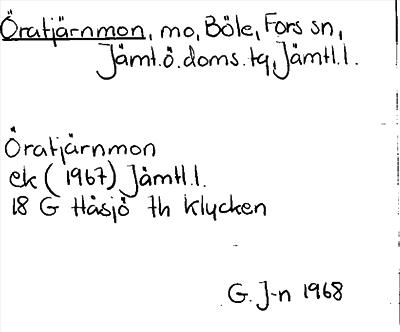 Öratjärnmon, mo, Böle, Fors sn,
Jämt.ö.doms.tg, Jämtl.l.
Öratjärnmon
ek (1967) Jämtl.l.
18 G Håsjö th Klycken
G. J-n 1968